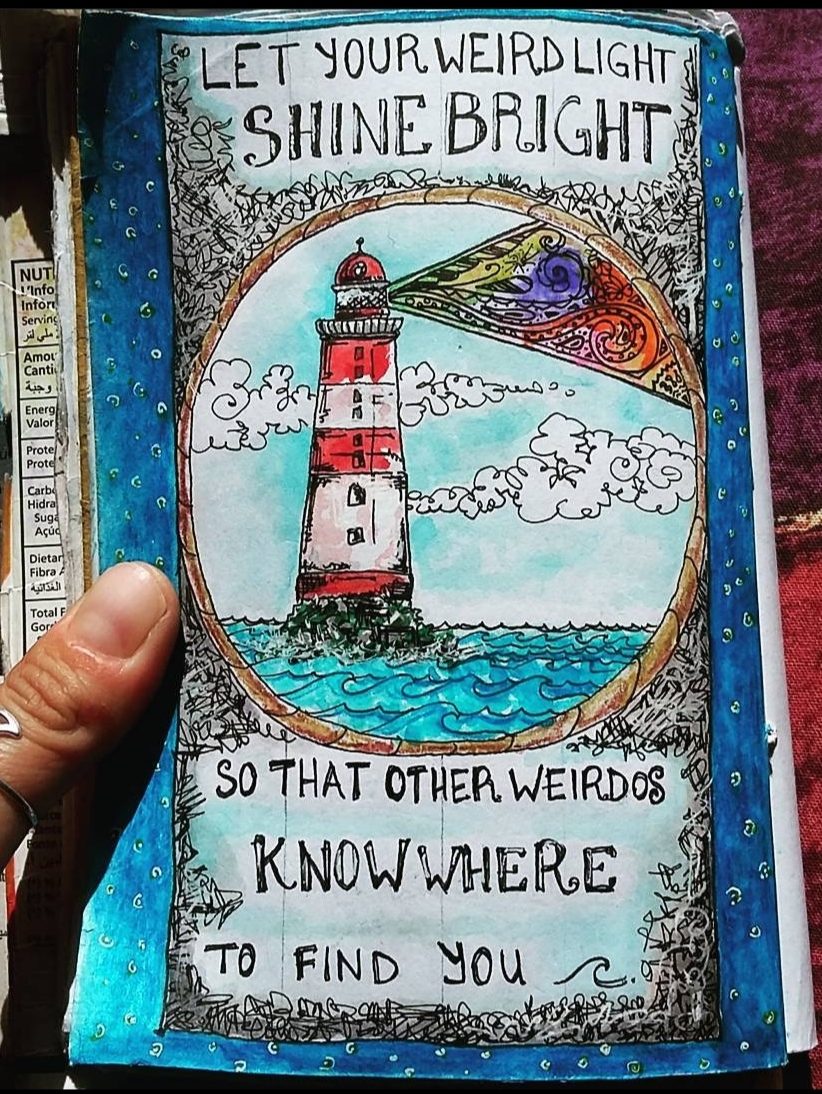 LET YOUR WEIRD LIGHT
SHINE BRIGHT
SO THAT OTHER WEIRDOS
KNOW WHERE
TO FIND YOU
NUT
L'Info
Inforr
Serving
ملي لتر
Amou
Canti
وجبة
Energ
Valor
Prote
Prote
Carb
Hidra
Suga
Açúc
Dietar
Fibra A
الغذائية
Total F
Gord